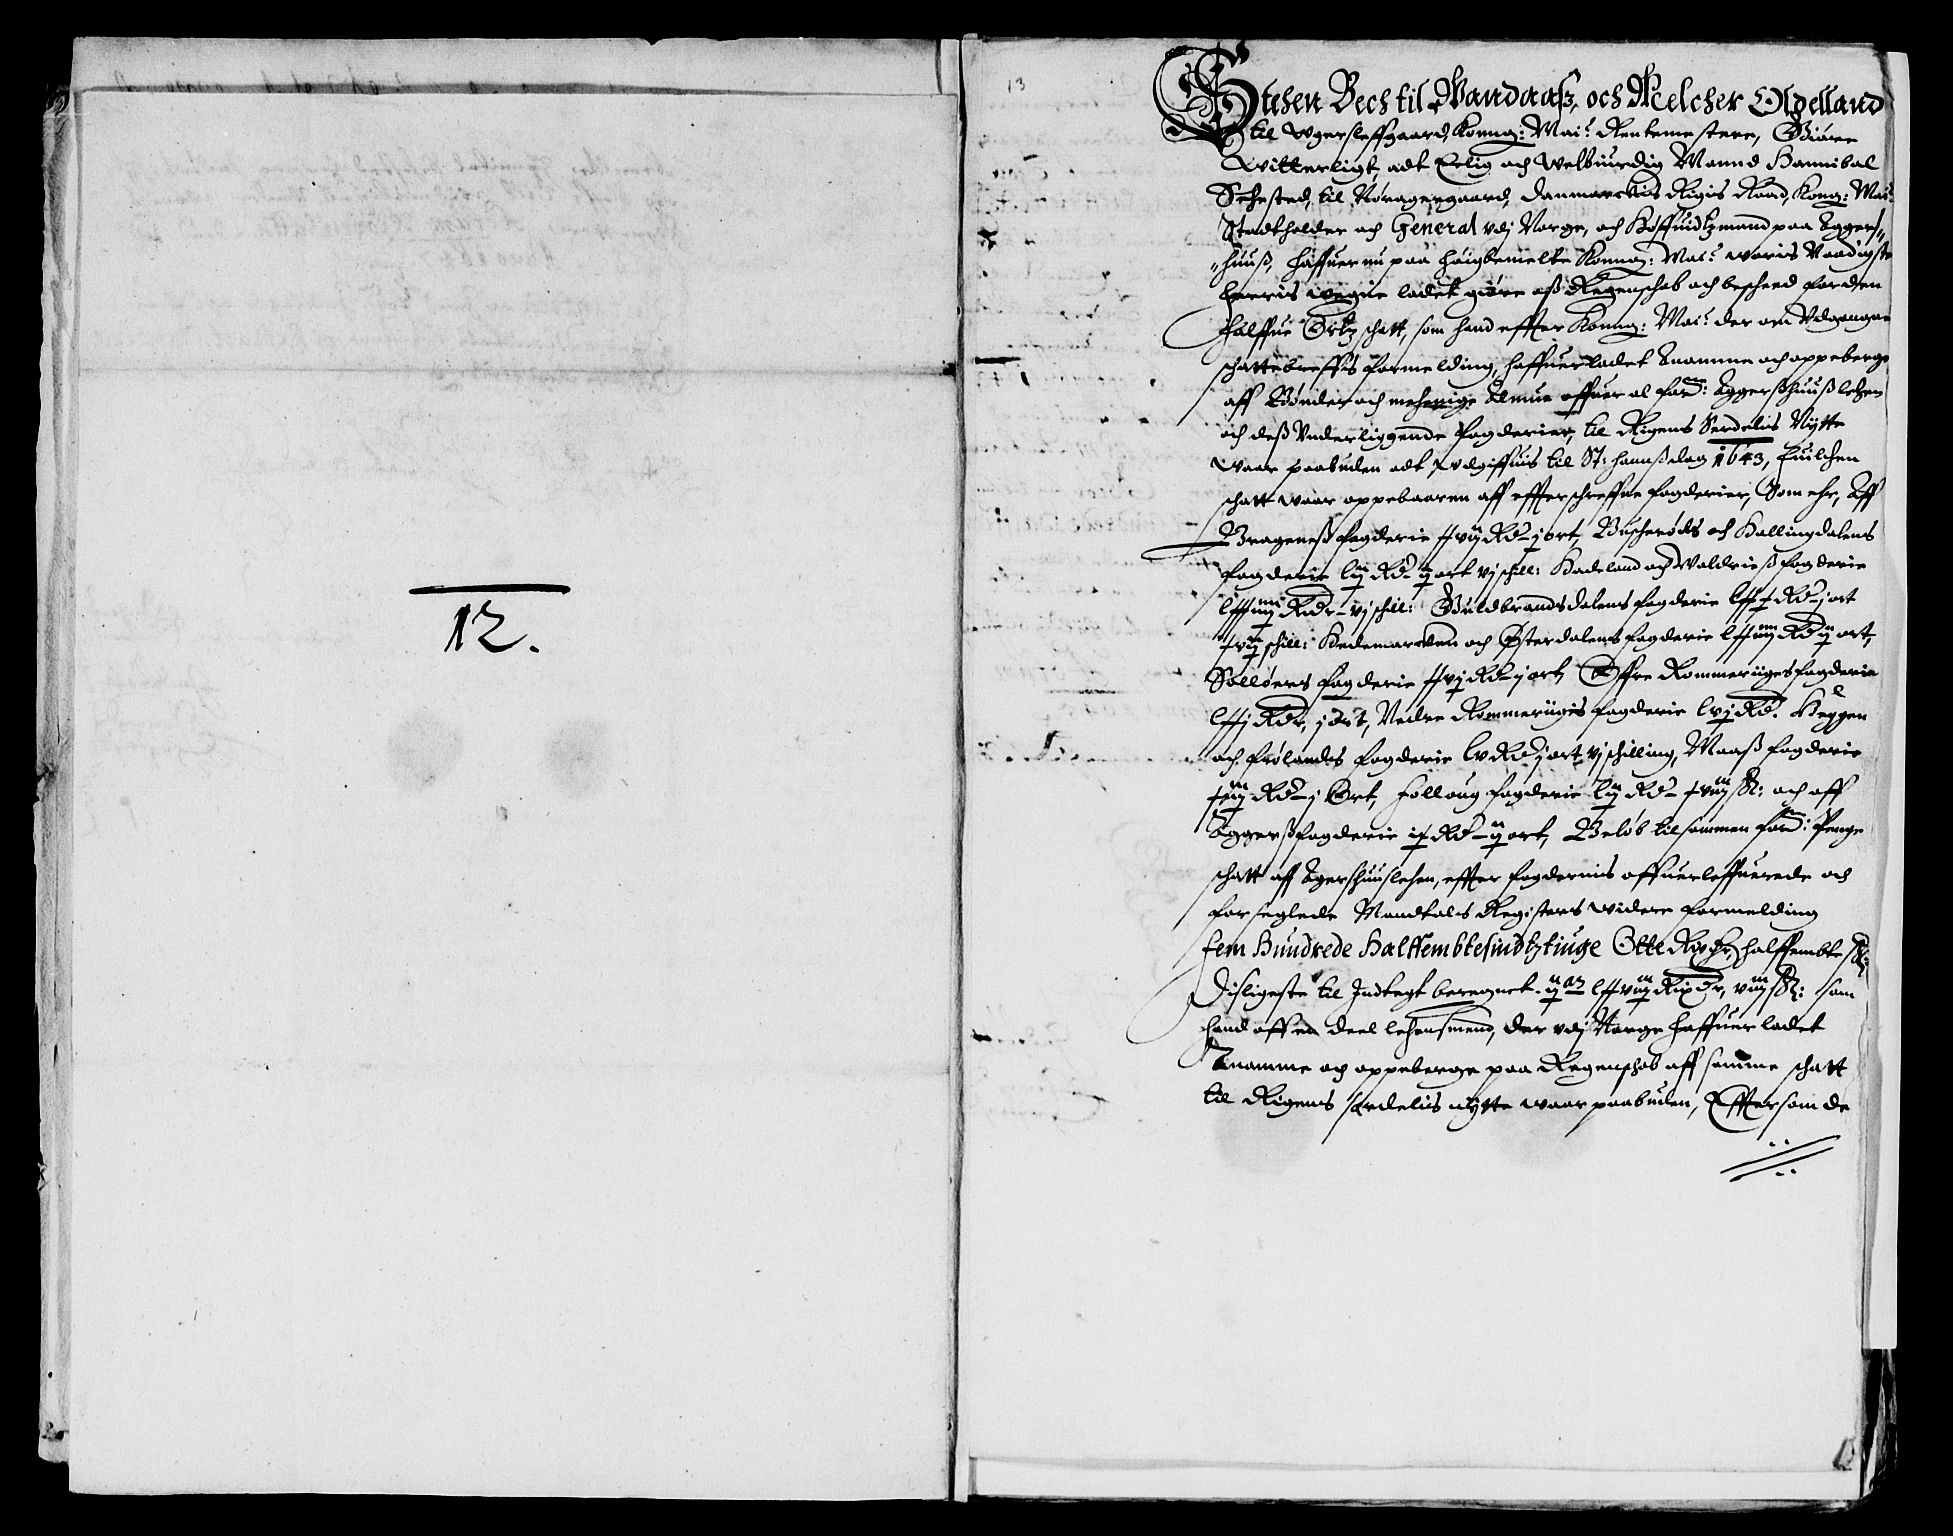 12.
13
Stehen Bech til Vandaass, och Melcher Oldelland
til Wgersleffgaard, Konng: Mai: Rentemestere, Giøre
Witterligt, adt Erlig och Welbiurdig Mannd Hannibal
Sehested, til Nøragergaard, Danmarckis Rigis Raad, Kong: Mai:
Stadtholder och General vdj Norge, och Høffuidtzmand paa Aggers"
"huuss, haffuer nu paa høigbemelte Konng: Mai: woris Naadigste
herris wegne ladet giøre oss Regenschab och bescheed for den
halffue Ortz schatt, som hand effter Konng: Mai: der om Vdgangne
schattebreffis formelding, haffuer ladet Anamme och oppeberge
aff Bønder och mehenige Almue offuer al for: Aggersshuuss lehen
och dess Vnderliggende fogderier, til Rigens Serdelis Nÿtte
waar paabuden adt vdgiffuis til St: hanssdag 1643, huilchen
schatt waar oppebaaren aff effterschreffne fogderier, Som ehr, Aff
Bragness fogderie Rd j ort, Buscherøds och Hallingdalens
fogderie Rd ort vj schill: Hadeland och Waldriess fogderie
Rdr vj schill: Guldbrandsdalens fogderie Rd j ort
schill: Hedemarcken och Østerdalens fogderie Rd ort,
Solløers fogderie Rd j ort, Øffre Rommerüges fogderie
Rdr, j ort, Nedre Rommerügis fogderie lvj Rd. Heggen
och Frølandes fogderie lv Rd j ort vj schilling, Moass fogderie
Rd j Ort, Folloug fogderie Rd ss: och aff
Aggerss fogderie Rd ort, Beløb tilsammen for: Penge
schatt aff Agershuuslehen, effter fogdernis offuerleffuerede och
forseglede Mandtals Registers widere formelding
fem Hundrede Halffembtesindtztiuge Otte Rixdr, halffembte ss:
Disligeste til Indtegt beregnet Rixdr, ss: som
hand aff en deel lehensmend, der vdj Norge haffuer ladet
Anamme och oppeberge paa Regenschab aff samme schatt
til Rigens serdelis nÿtte waar paabuden, Effter som de